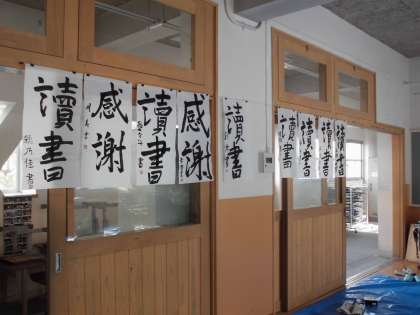 讀書
感謝
讀書
感謝
讀書
讀書
讀書
讀書
讀書